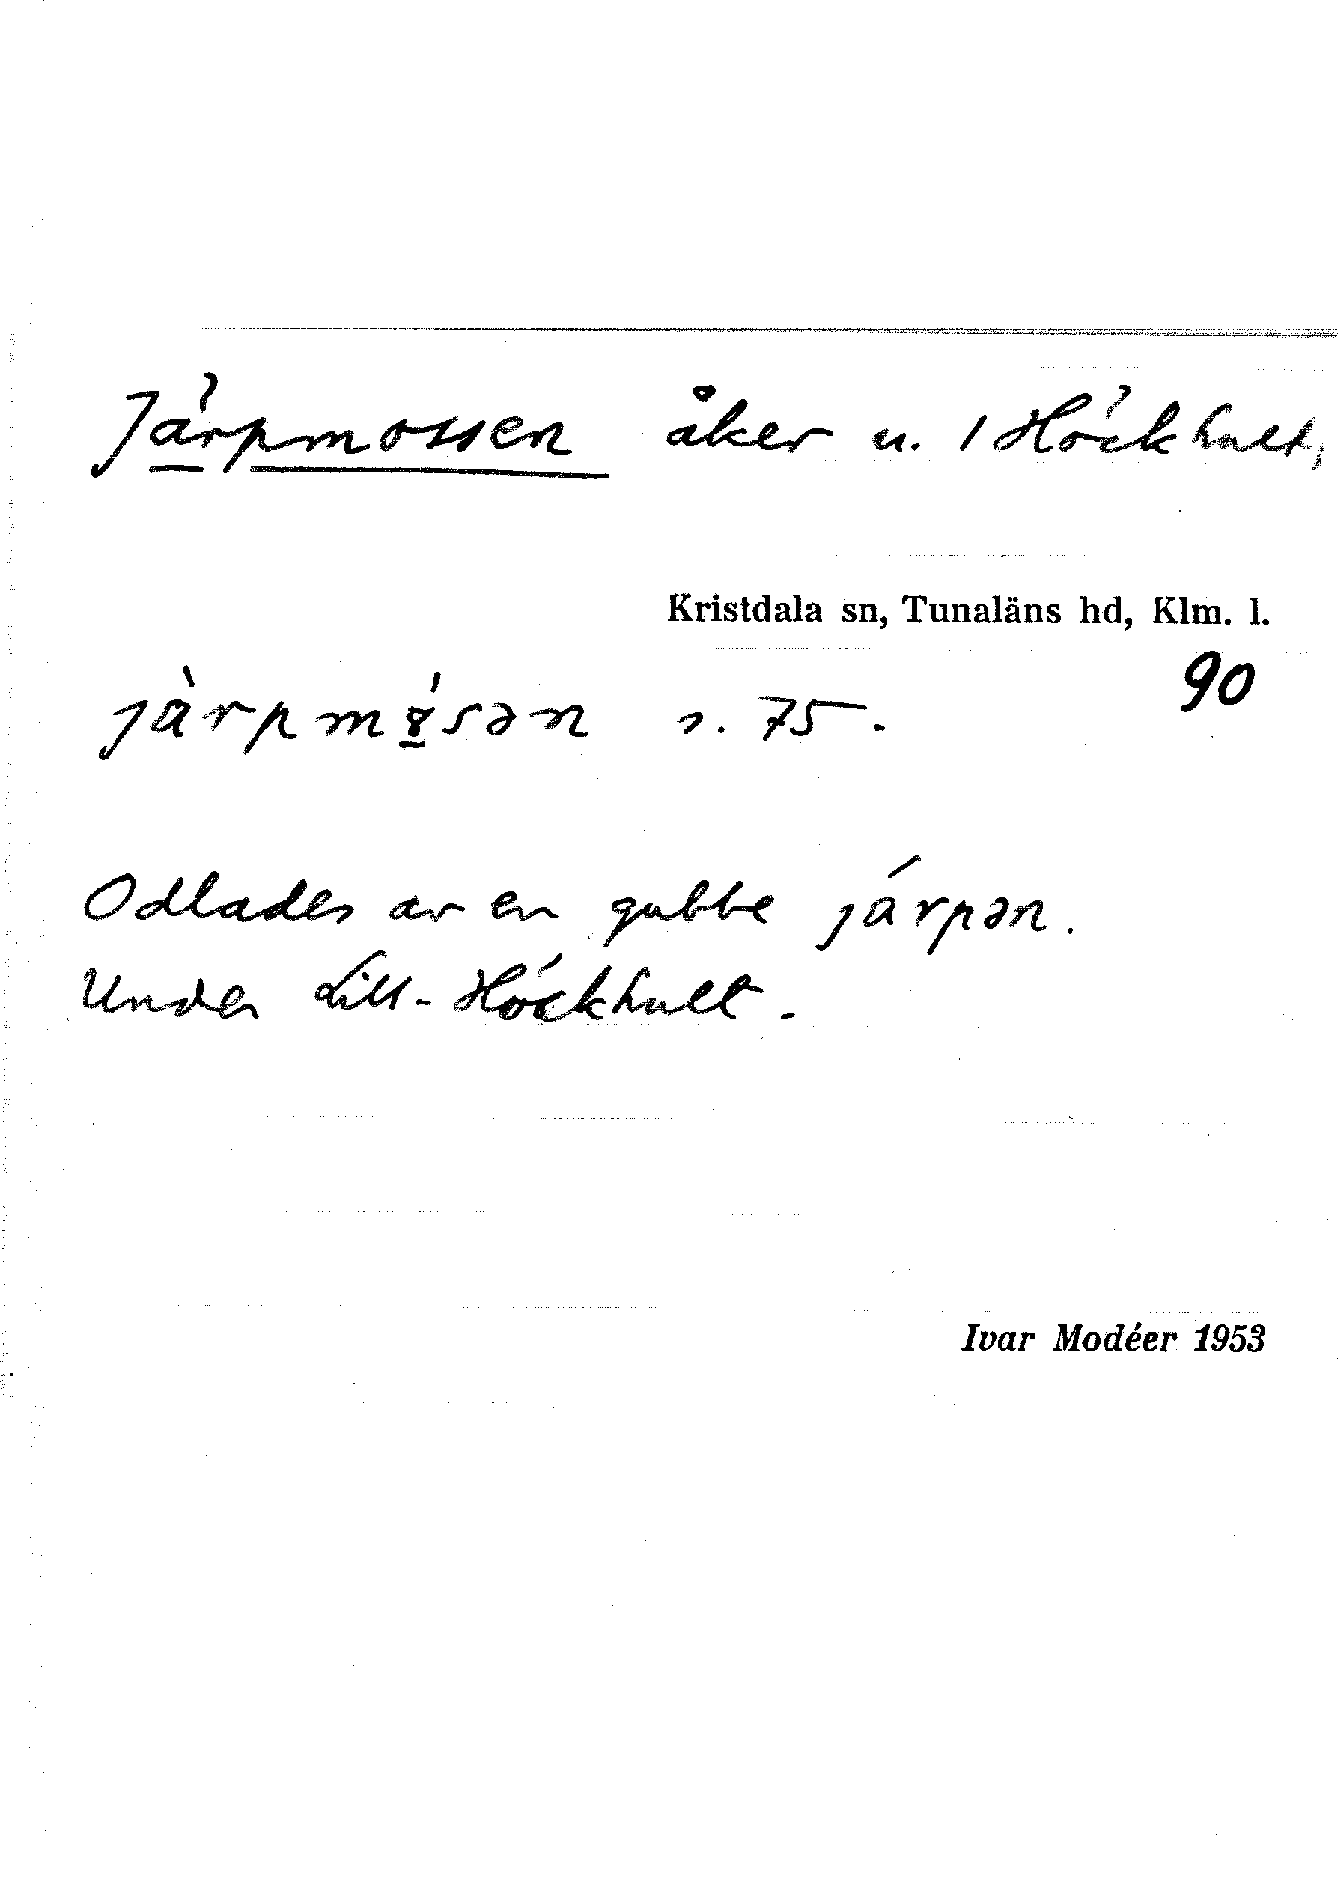 Järpmossen åker u. 1 Höckhult,
Kristdala sn, Tunaläns hd, Klm. l.
90
järpmósən s. 75.
Odlades av en gubbe járpən.
Under Lill-Höckhult.
Ivar Modéer 1953